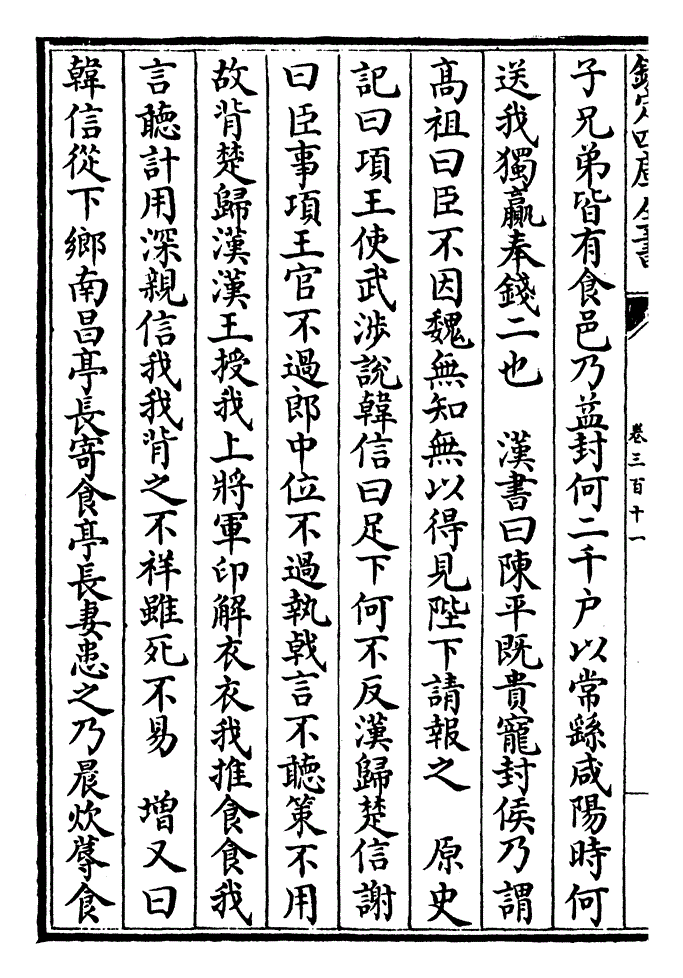 欽定四庫全書
卷三百十一
子兄弟皆有食邑乃益封何二千户以常繇咸陽時何
送我獨贏奉錢二也　漢書曰陳平既貴寵封侯乃謂
高祖曰臣不因魏無知無以得見陛下請報之　原史
記曰項王使武渉說韓信曰足下何不反漢歸楚信謝
曰臣事項王官不過郎中位不過執戟言不聽策不用
故背楚歸漢漢王授我上將軍印解衣衣我推食食我
言聽計用深親信我我背之不祥雖死不易　增又曰
韓信從下鄉南昌亭長寄食亭長妻患之乃晨炊蓐食